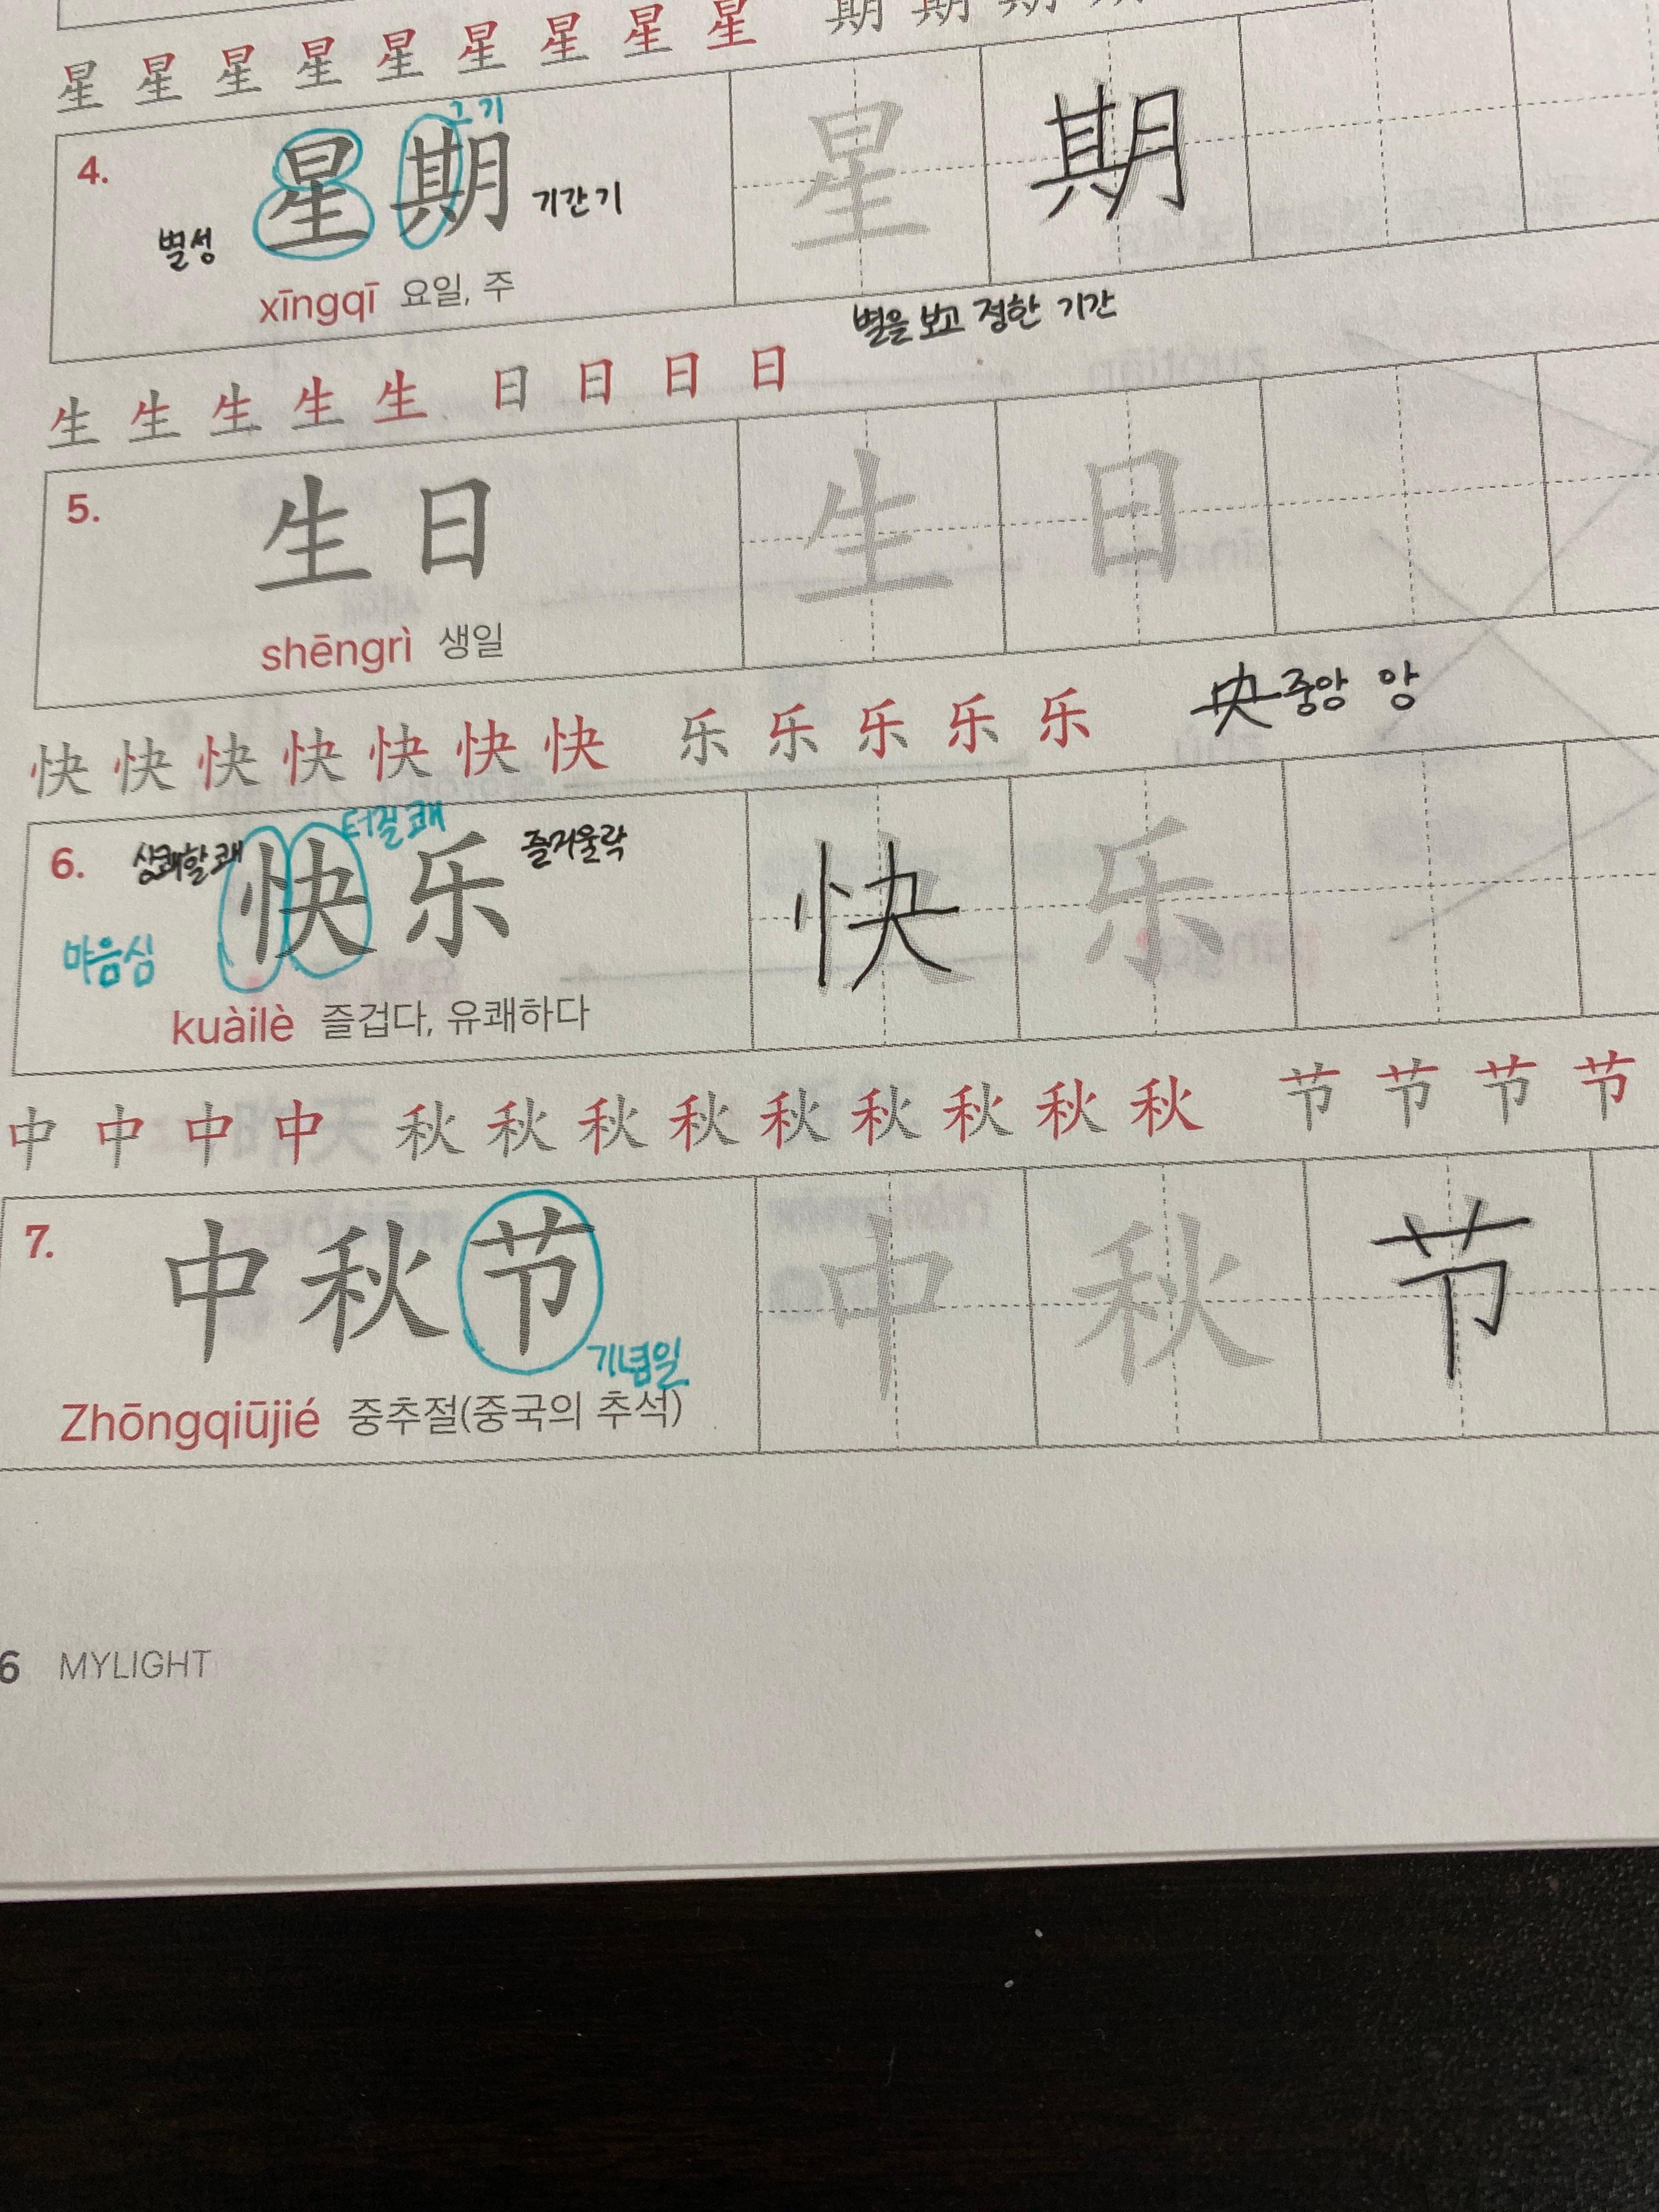 星 星 星 星 星 星 星 星 星 期 期 期 期
4. 星期 星 期
그 기
별 성
기간 기
xīngqī 요일, 주
별을 보고 정한 기간
生 生 生 生 生 日 日 日 日
5. 生日 生 日
shēngrì 생일
央 중앙 앙
快 快 快 快 快 快 快 乐 乐 乐 乐 乐
6. 快乐 快 乐
상쾌할 쾌
터질 쾌
즐거울 락
마음 심
kuàilè 즐겁다, 유쾌하다
中 中 中 中 秋 秋 秋 秋 秋 秋 秋 秋 秋 节 节 节 节
7. 中秋节 中 秋 节
기념일
Zhōngqiūjié 중추절(중국의 추석)
6 MYLIGHT